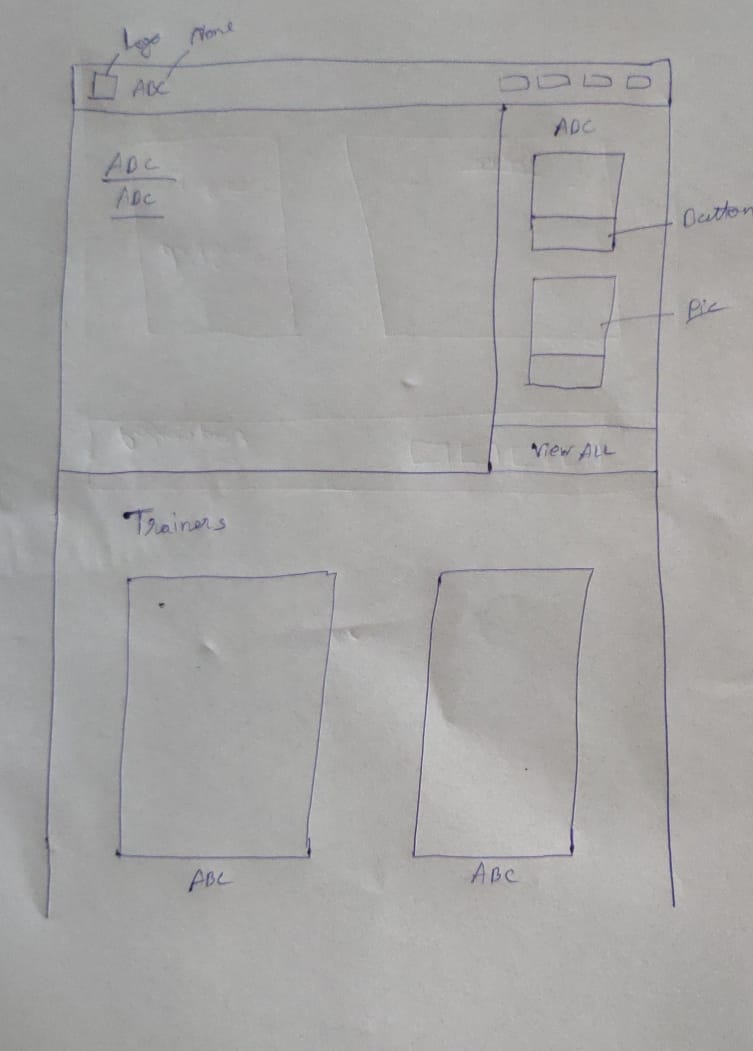 Logo Name
ABC
ADC
ADC
ADC
Button
Pic
View ALL
Trainers
ABC
ABC